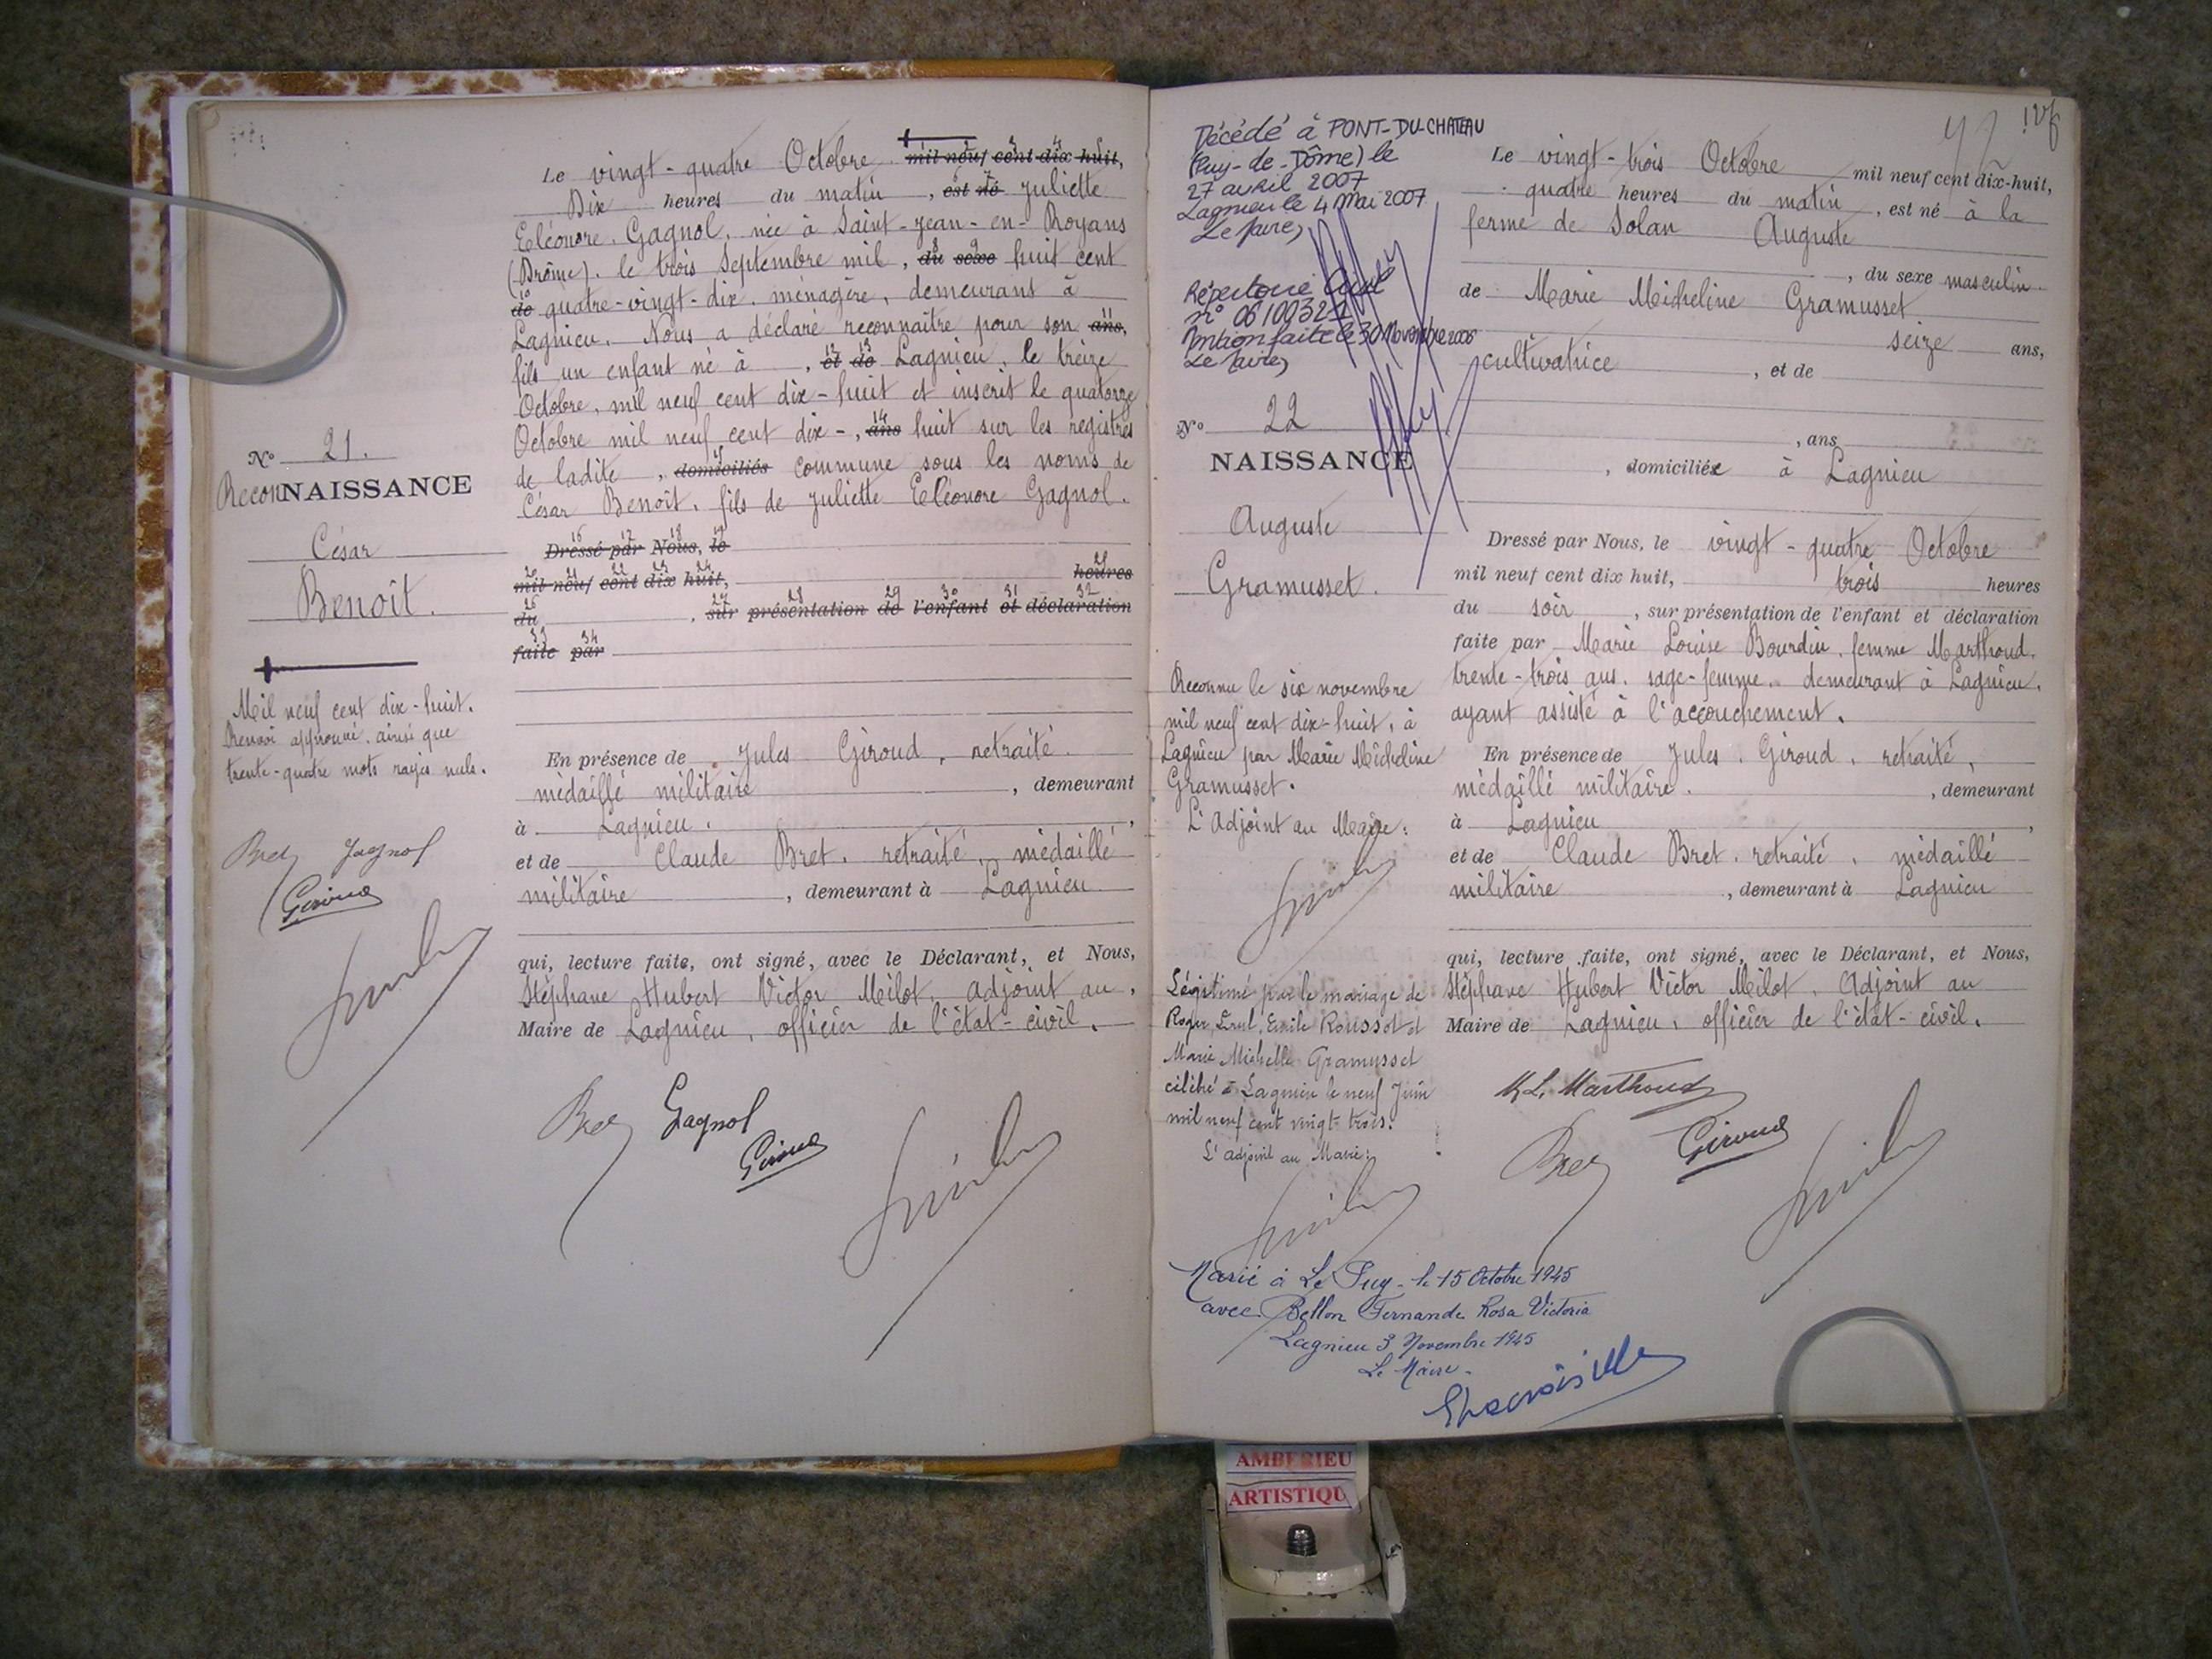 Le vingt-quatre Octobre mil neuf cent dix huit,
Dix heures du matin, est né Juliette
Eléonore Gagnol, née à Saint-Jean-en-Royans
(Drôme), le trois Septembre mil, du sexe huit cent
de quatre-vingt-dix, ménagère, demeurant à
Lagnieu, Nous a déclaré reconnaitre pour son ans,
fils un enfant né à , et de Lagnieu, le treize
Octobre, mil neuf cent dix-huit et inscrit le quatorze
Octobre mil neuf cent dix-, ans huit sur les registres
de ladite , domiciliés commune sous les noms de
César Benoît, fils de Juliette Eléonore Gagnol.
Nº 21.
ReconNAISSANCE
César
Benoît.
Dressé par Nous, le
mil neuf cent dix huit, heures
du , sur présentation de l'enfant et déclaration
faite par
Mil neuf cent dix-huit.
Renvoi approuvé, ainsi que
trente-quatre mots rayés nuls.
Bret Gagnol
Giroud
En présence de Jules Giroud, retraité
médaillé militaire , demeurant
à Lagnieu,
et de Claude Bret, retraité, médaillé
militaire , demeurant à Lagnieu
qui, lecture faite, ont signé, avec le Déclarant, et Nous,
Stéphane Hubert Victor Milot, adjoint au
Maire de Lagnieu, officier de l'état-civil.
Bret Gagnol
Giroud
47
Décédé à PONT-DU-CHATEAU
(Puy-de-Dôme) le
27 avril 2007
Lagnieu le 4 Mai 2007
Le Maire,
Répertoire Civil
n° 06100327
Mention faite le 30 Novembre 2006
Le Maire,
Nº 22
NAISSANCE
Auguste
Gramusset.
Le vingt-trois Octobre mil neuf cent dix-huit,
quatre heures du matin, est né à la
ferme de Solan Auguste
, du sexe masculin
de Marie Micheline Gramusset
seize ans,
cultivatrice , et de
, ans
, domiciliée à Lagnieu
Dressé par Nous, le vingt-quatre Octobre
mil neuf cent dix huit, trois heures
du soir , sur présentation de l'enfant et déclaration
faite par Marie Louise Bourdin, femme Marthoud,
trente-trois ans, sage-femme, demeurant à Lagnieu,
ayant assisté à l'accouchement.
En présence de Jules Giroud, retraité,
médaillé militaire. , demeurant
à Lagnieu ,
et de Claude Bret, retraité, médaillé
militaire , demeurant à Lagnieu
qui, lecture faite, ont signé, avec le Déclarant, et Nous,
Stéphane Hubert Victor Milot, Adjoint au
Maire de Lagnieu, officier de l'état-civil.
M. L. Marthoud
Bret Giroud
Reconnu le six novembre
mil neuf cent dix-huit, à
Lagnieu par Marie Micheline
Gramusset.
L'Adjoint au Maire:
Légitimé par le mariage de
Roger, Paul, Emile Roussot et
Marie Michelle Gramusset
célébré à Lagnieu le neuf Juin
mil neuf cent vingt-trois.
L'adjoint au Maire:
Marié à Le Puy - le 15 Octobre 1945
avec Bellon Fernande Rosa Victoria
Lagnieu 3 Novembre 1945
Le Maire -
AMBERIEU
ARTISTIQU